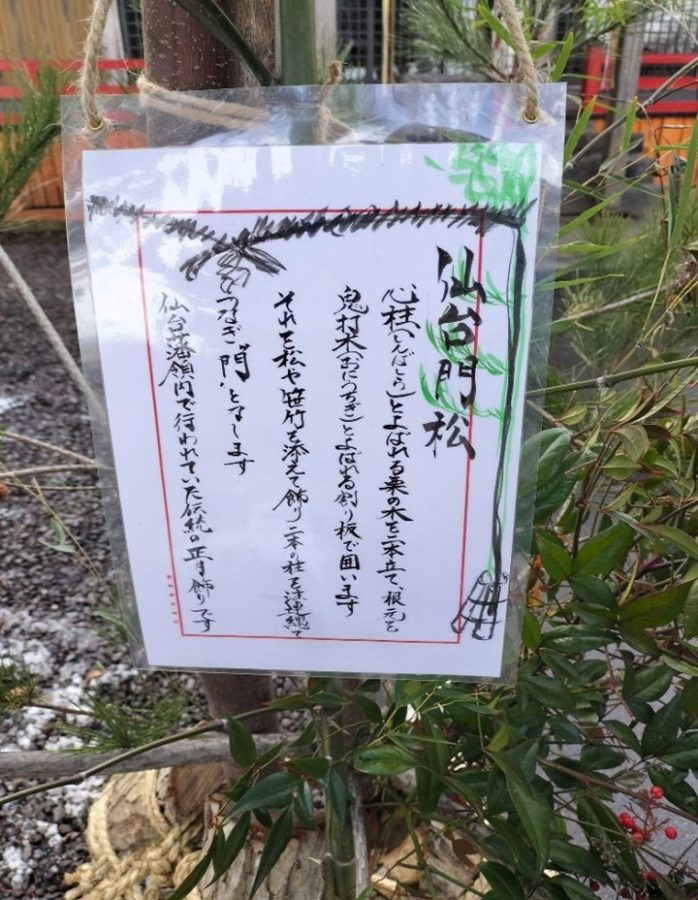 仙台門松
心柱(しんばしら)とよばれる栗の木を二本立て、根元を
鬼打木(おにうちぎ)とよばれる割り板で囲います
それを松や笹竹を添えて飾り二本の柱を注連縄で
つなぎ"門"とします
仙台藩領内で行われていた伝統の正月飾りです